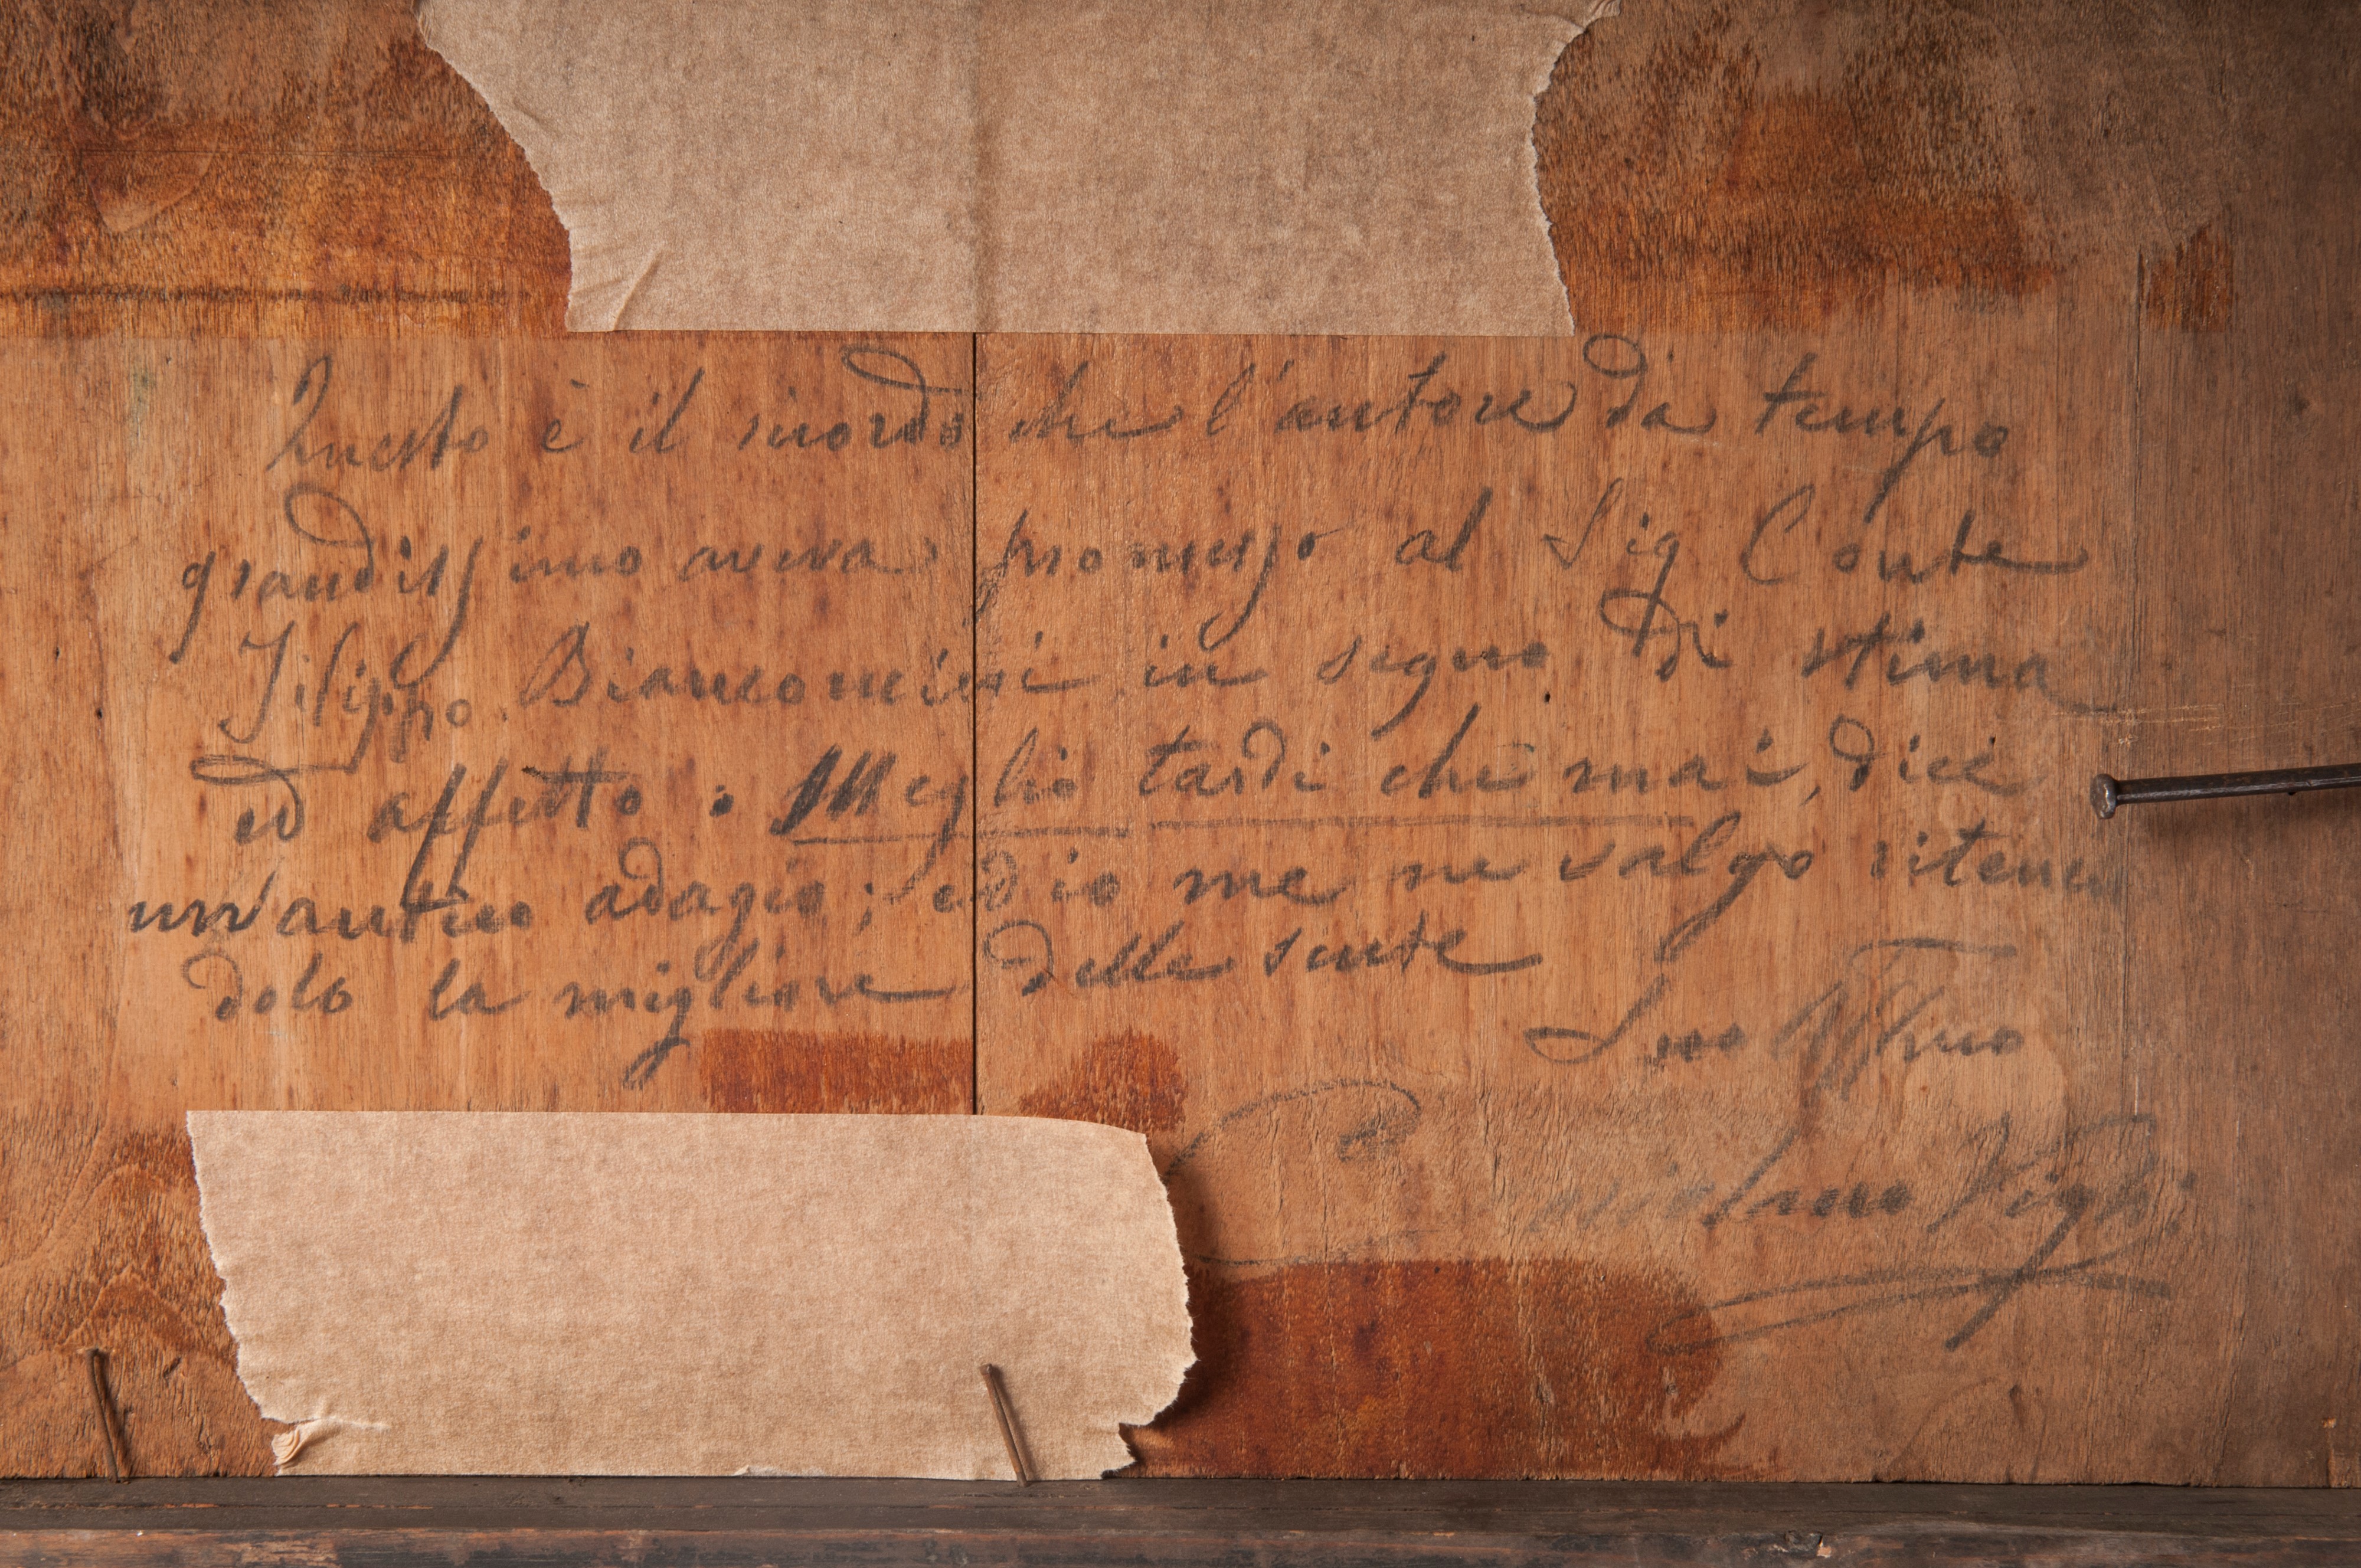 Questo è il ricordo che l'autore da tempo
grandissimo aveva promesso al Sig Conte
Filippo Bianconcini in segno di stima
ed affetto. Meglio tardi che mai, dice
un'antico adagio; ed io me ne valgo ritenen
dolo la migliore delle scute
Suo Affmo